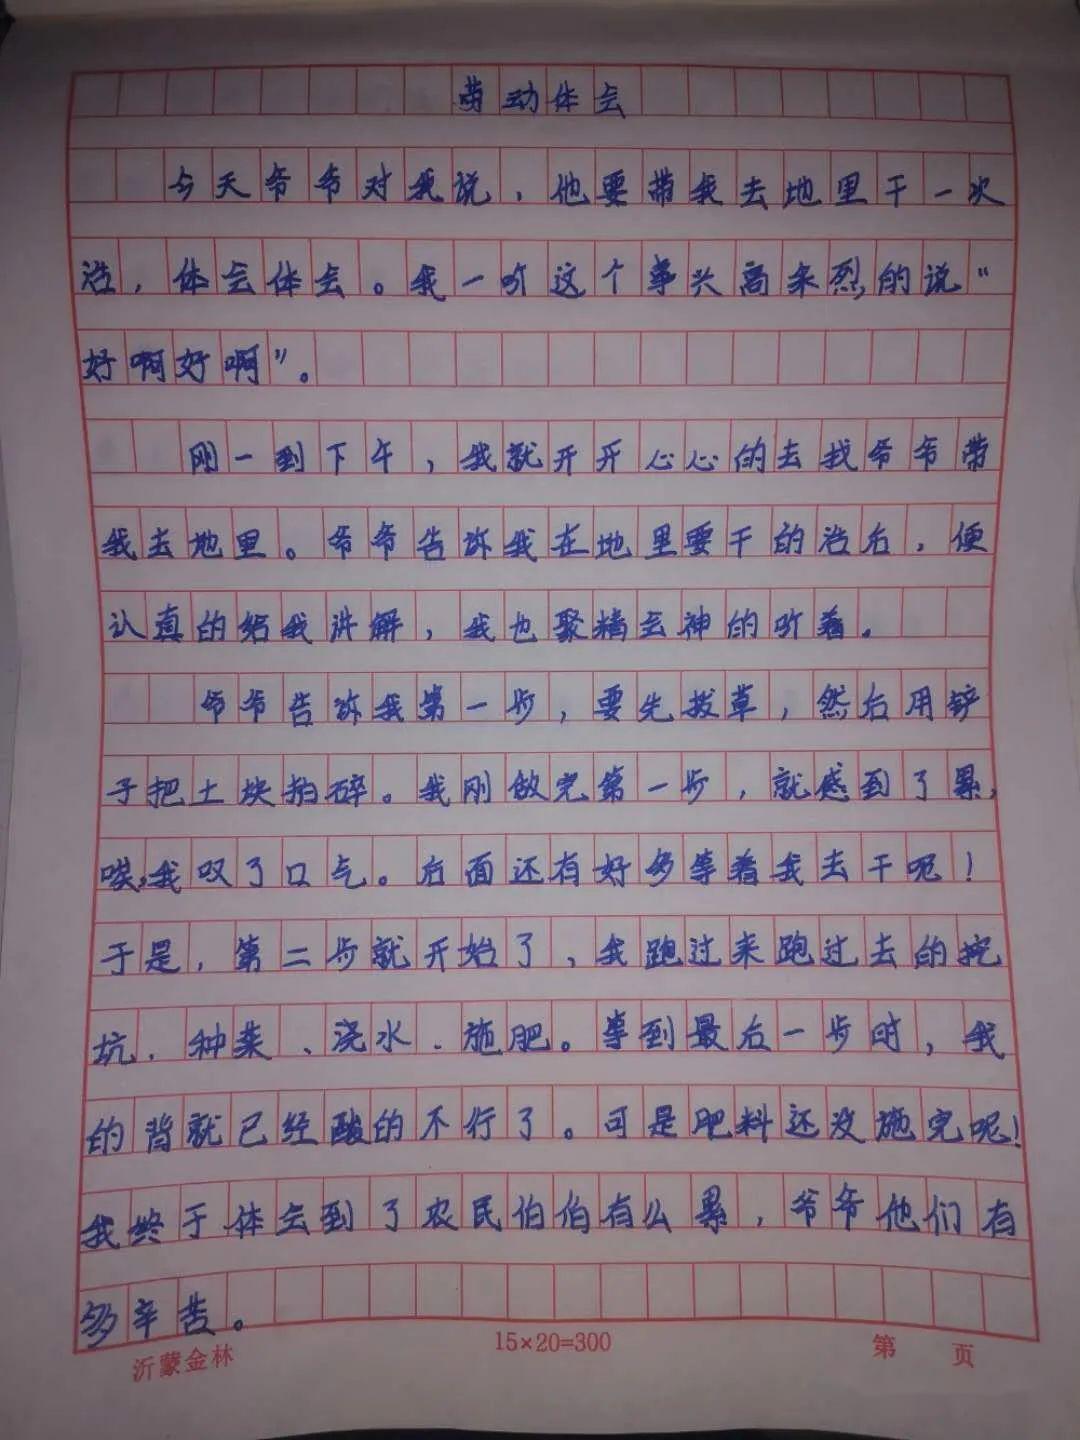 劳动体会
今天爷爷对我说，他要带我去地里干一次
活，体会体会。我一听这个事兴高采烈的说“
好啊好啊”。
刚一到下午，我就开开心心的去找爷爷带
我去地里。爷爷告诉我在地里要干的活后，便
认真的给我讲解，我也聚精会神的听着。
爷爷告诉我第一步，要先拔草，然后用铲
子把土块拍碎。我刚做完第一步，就感到了累，
唉，我叹了口气。后面还有好多等着我去干呢！
于是，第二步就开始了，我跑过来跑过去的挖
坑、种菜、浇水、施肥。等到最后一步时，我
的背就已经酸的不行了。可是肥料还没施完呢！
我终于体会到了农民伯伯有么累，爷爷他们有
多辛苦。
沂蒙金林
15×20=300
第 页